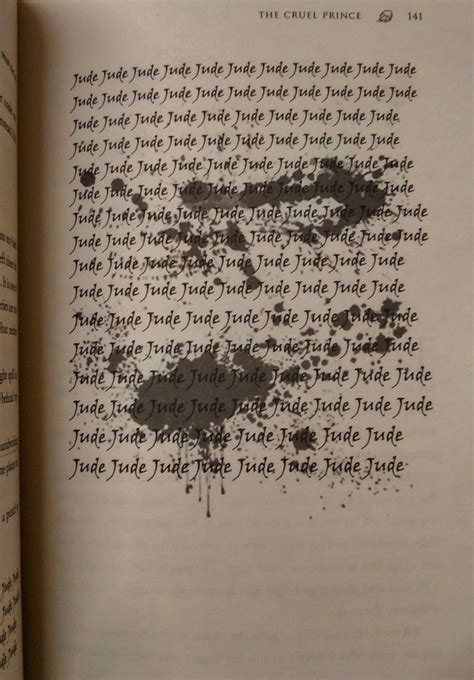 THE CRUEL PRINCE 141
Jude Jude Jude Jude Jude Jude Jude Jude Jude Jude Jude
Jude Jude Jude Jude Jude Jude Jude Jude Jude Jude Jude
Jude Jude Jude Jude Jude Jude Jude Jude Jude Jude
Jude Jude Jude Jude Jude Jude Jude Jude Jude Jude
Jude Jude Jude Jude Jude Jude Jude Jude Jude Jude
Jude Jude Jude Jude Jude Jude Jude Jude Jude Jude
Jude Jude Jude Jude Jude Jude Jude Jude Jude Jude
Jude Jude Jude Jude Jude Jude Jude Jude Jude Jude
Jude Jude Jude Jude Jude Jude Jude Jude Jude
Jude Jude Jude Jude Jude Jude Jude Jude Jude
Jude Jude Jude Jude Jude Jude Jude Jude Jude
Jude Jude Jude Jude Jude Jude Jude Jude Jude
Jude Jude Jude Jude Jude Jude Jude Jude Jude
Jude Jude Jude Jude Jude Jude Jude Jude Jude
Jude Jude Jude Jude Jude Jude Jude Jude
Jude Jude Jude Jude Jude Jude Jude Jude